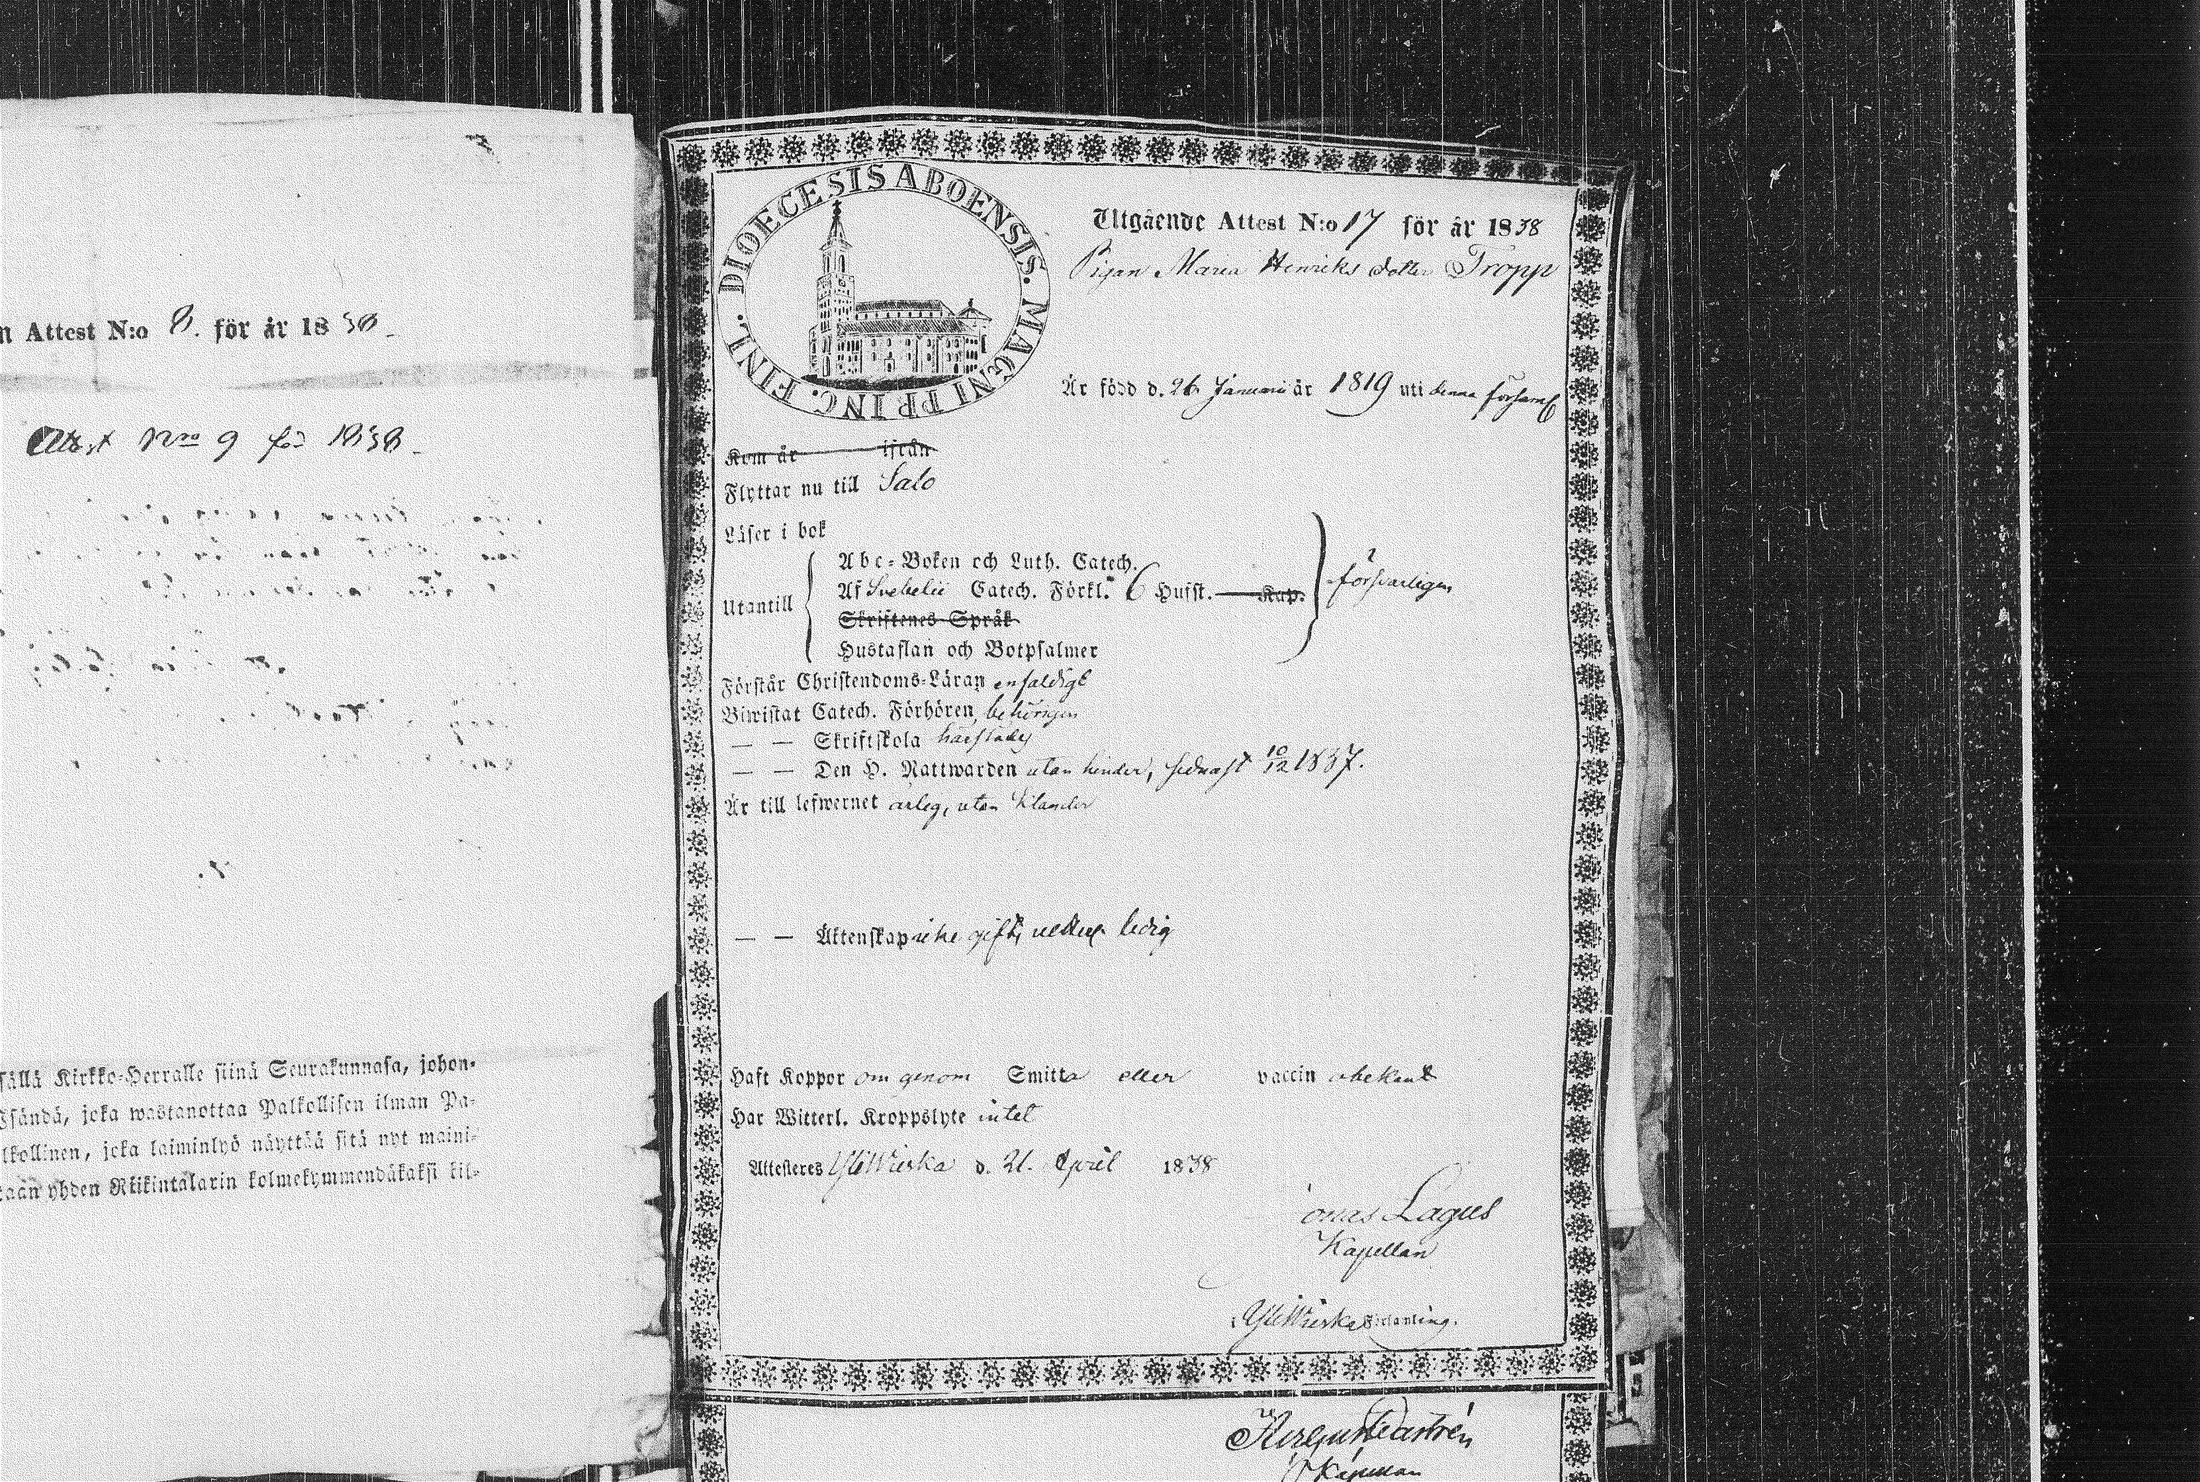 Attest N:o 8. för år 1838
Attest Nro 9 för 1838
Kirkko-Herralle siinä Seurakunnasa, johon-
joka wastanottaa Palkollisen ilman Pa-
joka laiminlyö näyttää sitä nyt maini-
yhden Riikintalarin kolmekymmendäkaksi kil-
DIOECESIS ABOENSIS. MAGNI PRINC. FINL.
Utgående Attest N:o 17 för år 1838
Pigan Maria Henriks dotter Tropp
Är född d. 26 Januarii år 1819 uti denna församl
Kom år ifrån
Flyttar nu till Salo
Läser i bok
Utantill
Abc-Boken och Luth. Catech.
Af Svebelii Catech. Förkl. 6 Hufst. Kap.
Skriftenes Språk
Hustaflan och Botpsalmer
försvarligen
Förstår Christendoms-Läran enfaldigt
Biwistat Catech. Förhören behörigen
— — Skriftskola
— — Den H. Nattwarden utan hinder, sednast 10/12 1837.
Är till lefwernet ärlig, utan klander
— — Äktenskap icke gift, utan ledig
Haft Koppor om genom Smitta eller vaccin obekant
Har Witterl. Kroppslyte intet
Attesteres YliWieska d. 21. April 1838
Jonas Lagus
Kapellan
i YliWieska Församling.
Kapellan